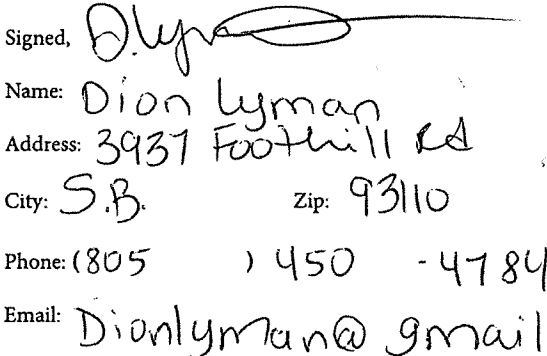 Signed, D. Lyman
Name: Dion Lyman
Address: 3937 Foothill Rd
City: S.B. Zip: 93110
Phone: (805 ) 450 - 4784
Email: Dionlyman@ gmail